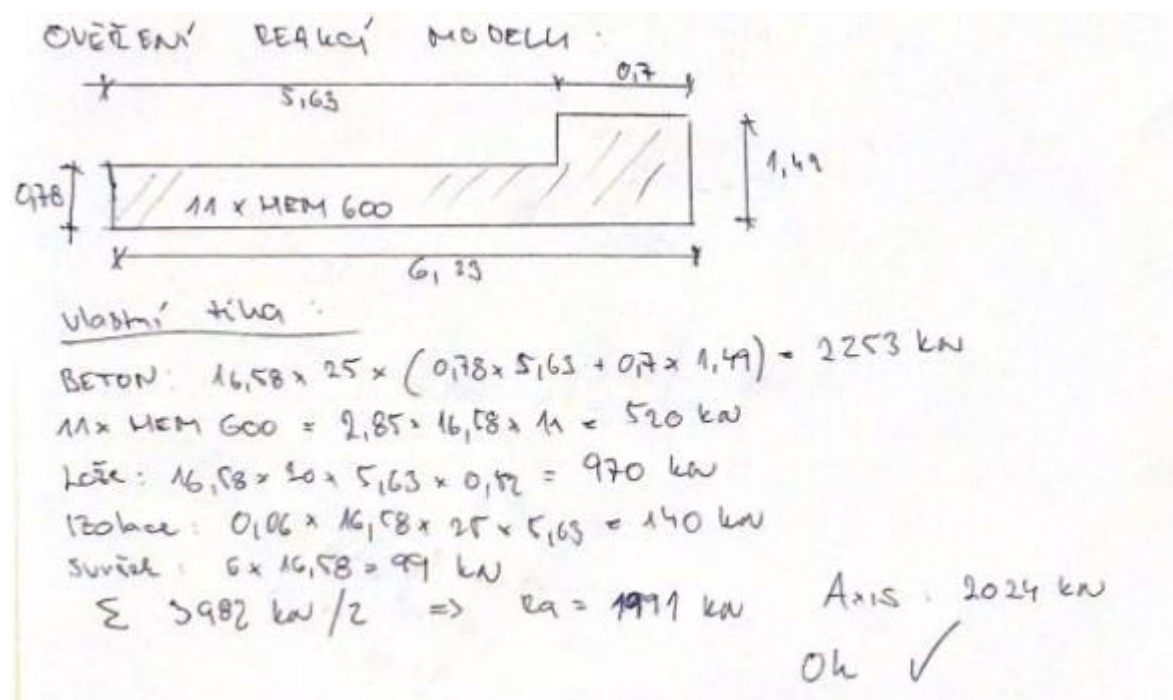 OVĚŘENÍ REAKCÍ MODELU :
5,63
0,7
0,78
11 x HEM 600
1,49
6,33
vlastní tíha :
BETON: 16,58 x 25 x (0,78 x 5,63 + 0,7 x 1,49) = 2253 kN
11x HEM 600 = 2,85 x 16,58 x 11 = 520 kN
Lože: 16,58 x 20 x 5,63 x 0,52 = 970 kN
Izolace: 0,06 x 16,58 x 25 x 5,63 = 140 kN
svršek : 6 x 16,58 = 99 kN
Σ 3982 kN /2 => Ra = 1991 kN
Axis : 2024 kN
Ok ✓